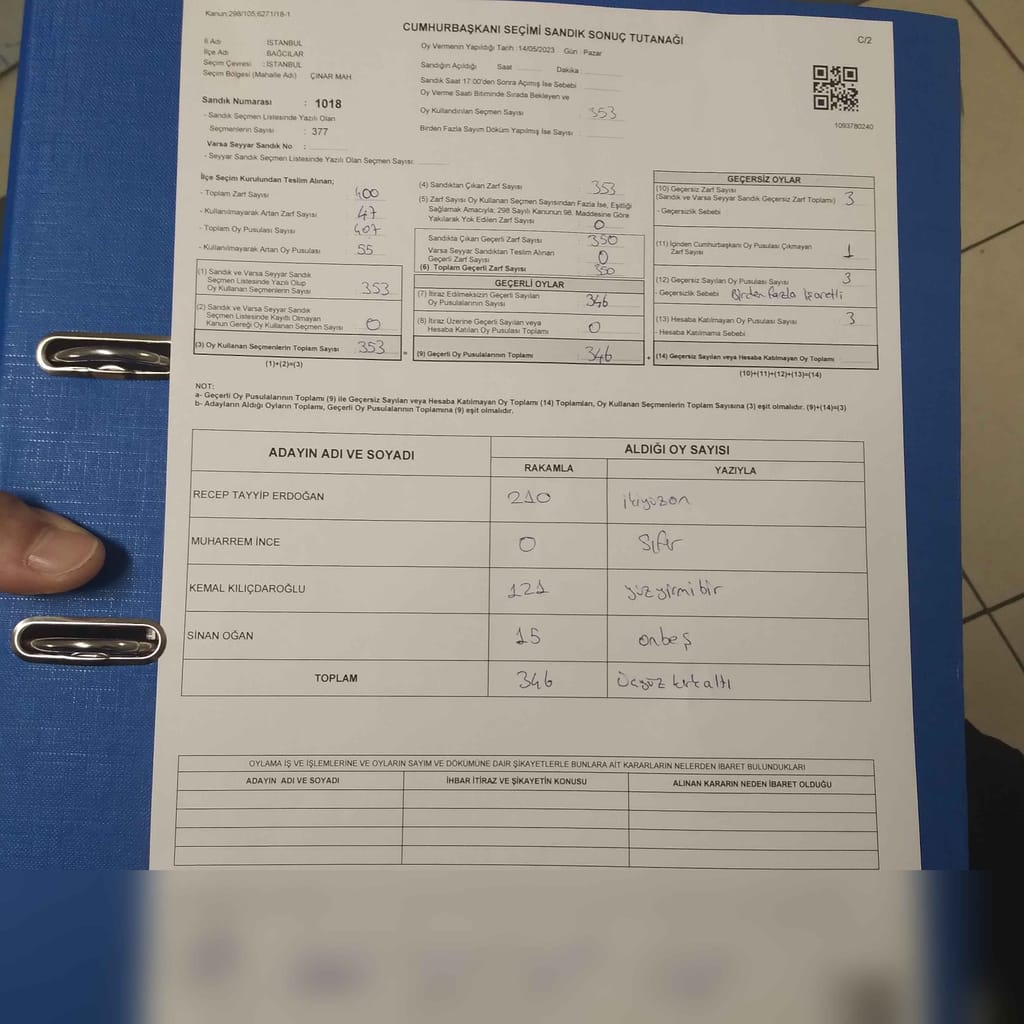 Kanun:298/105;6271/18-1
CUMHURBAŞKANI SEÇİMİ SANDIK SONUÇ TUTANAĞI
C/2
İl Adı : İSTANBUL
İlçe Adı : BAĞCILAR
Seçim Çevresi : İSTANBUL
Seçim Bölgesi (Mahalle Adı) ÇINAR MAH.
Sandık Numarası : 1018
- Sandık Seçmen Listesinde Yazılı Olan
Seçmenlerin Sayısı : 377
Varsa Seyyar Sandık No :
- Seyyar Sandık Seçmen Listesinde Yazılı Olan Seçmen Sayısı:
Oy Vermenin Yapıldığı Tarih :14/05/2023 Gün : Pazar
Sandığın Açıldığı Saat Dakika
Sandık Saat 17:00'den Sonra Açımış İse Sebebi
Oy Verme Saati Bitiminde Sırada Bekleyen ve
Oy Kullandırılan Seçmen Sayısı 353
Birden Fazla Sayım Döküm Yapılmış İse Sayısı :
1093780240
İlçe Seçim Kurulundan Teslim Alınan;
- Toplam Zarf Sayısı 400
- Kullanılmayarak Artan Zarf Sayısı 47
- Toplam Oy Pusulası Sayısı 407
- Kullanılmayarak Artan Oy Pusulası 55
(1) Sandık ve Varsa Seyyar Sandık
Seçmen Listesinde Yazılı Olup
Oy Kullanan Seçmenlerin Sayısı 353
(2) Sandık ve Varsa Seyyar Sandık
Seçmen Listesinde Kayıtlı Olmayan
Kanun Gereği Oy Kullanan Seçmen Sayısı 0
(3) Oy Kullanan Seçmenlerin Toplam Sayısı 353
(1)+(2)=(3)
(4) Sandıktan Çıkan Zarf Sayısı 353
(5) Zarf Sayısı Oy Kullanan Seçmen Sayısından Fazla İse, Eşitliği
Sağlamak Amacıyla; 298 Sayılı Kanunun 98. Maddesine Göre
Yakılarak Yok Edilen Zarf Sayısı 0
Sandıkta Çıkan Geçerli Zarf Sayısı 350
Varsa Seyyar Sandıktan Teslim Alınan
Geçerli Zarf Sayısı 0
(6) Toplam Geçerli Zarf Sayısı 350
GEÇERLİ OYLAR
(7) İtiraz Edilmeksizin Geçerli Sayılan
Oy Pusulalarının Sayısı 346
(8) İtiraz Üzerine Geçerli Sayılan veya
Hesaba Katılan Oy Pusulası Toplamı 0
= (9) Geçerli Oy Pusulalarının Toplamı 346
GEÇERSİZ OYLAR
(10) Geçersiz Zarf Sayısı
(Sandık ve Varsa Seyyar Sandık Geçersiz Zarf Toplamı) 3
- Geçersizlik Sebebi
(11) İçinden Cumhurbaşkanı Oy Pusulası Çıkmayan
Zarf Sayısı 1
(12) Geçersiz Sayılan Oy Pusulası Sayısı 3
- Geçersizlik Sebebi Birden fazla İşaretli
(13) Hesaba Katılmayan Oy Pusulası Sayısı 3
- Hesaba Katılmama Sebebi
+ (14) Geçersiz Sayılan veya Hesaba Katılmayan Oy Toplamı
(10)+(11)+(12)+(13)=(14)
NOT:
a- Geçerli Oy Pusulalarının Toplamı (9) ile Geçersiz Sayılan veya Hesaba Katılmayan Oy Toplamı (14) Toplamları, Oy Kullanan Seçmenlerin Toplam Sayısına (3) eşit olmalıdır. (9)+(14)=(3)
b- Adayların Aldığı Oyların Toplamı, Geçerli Oy Pusulalarının Toplamına (9) eşit olmalıdır.
ADAYIN ADI VE SOYADI ALDIĞI OY SAYISI
RAKAMLA YAZIYLA
RECEP TAYYİP ERDOĞAN 210 ikiyüzon
MUHARREM İNCE 0 Sıfır
KEMAL KILIÇDAROĞLU 121 yüzyirmibir
SİNAN OĞAN 15 onbeş
TOPLAM 346 Üçyüz kırkaltı
OYLAMA İŞ VE İŞLEMLERİNE VE OYLARIN SAYIM VE DÖKÜMÜNE DAİR ŞİKAYETLERLE BUNLARA AİT KARARLARIN NELERDEN İBARET BULUNDUKLARI
ADAYIN ADI VE SOYADI İHBAR İTİRAZ VE ŞİKAYETİN KONUSU ALINAN KARARIN NEDEN İBARET OLDUĞU